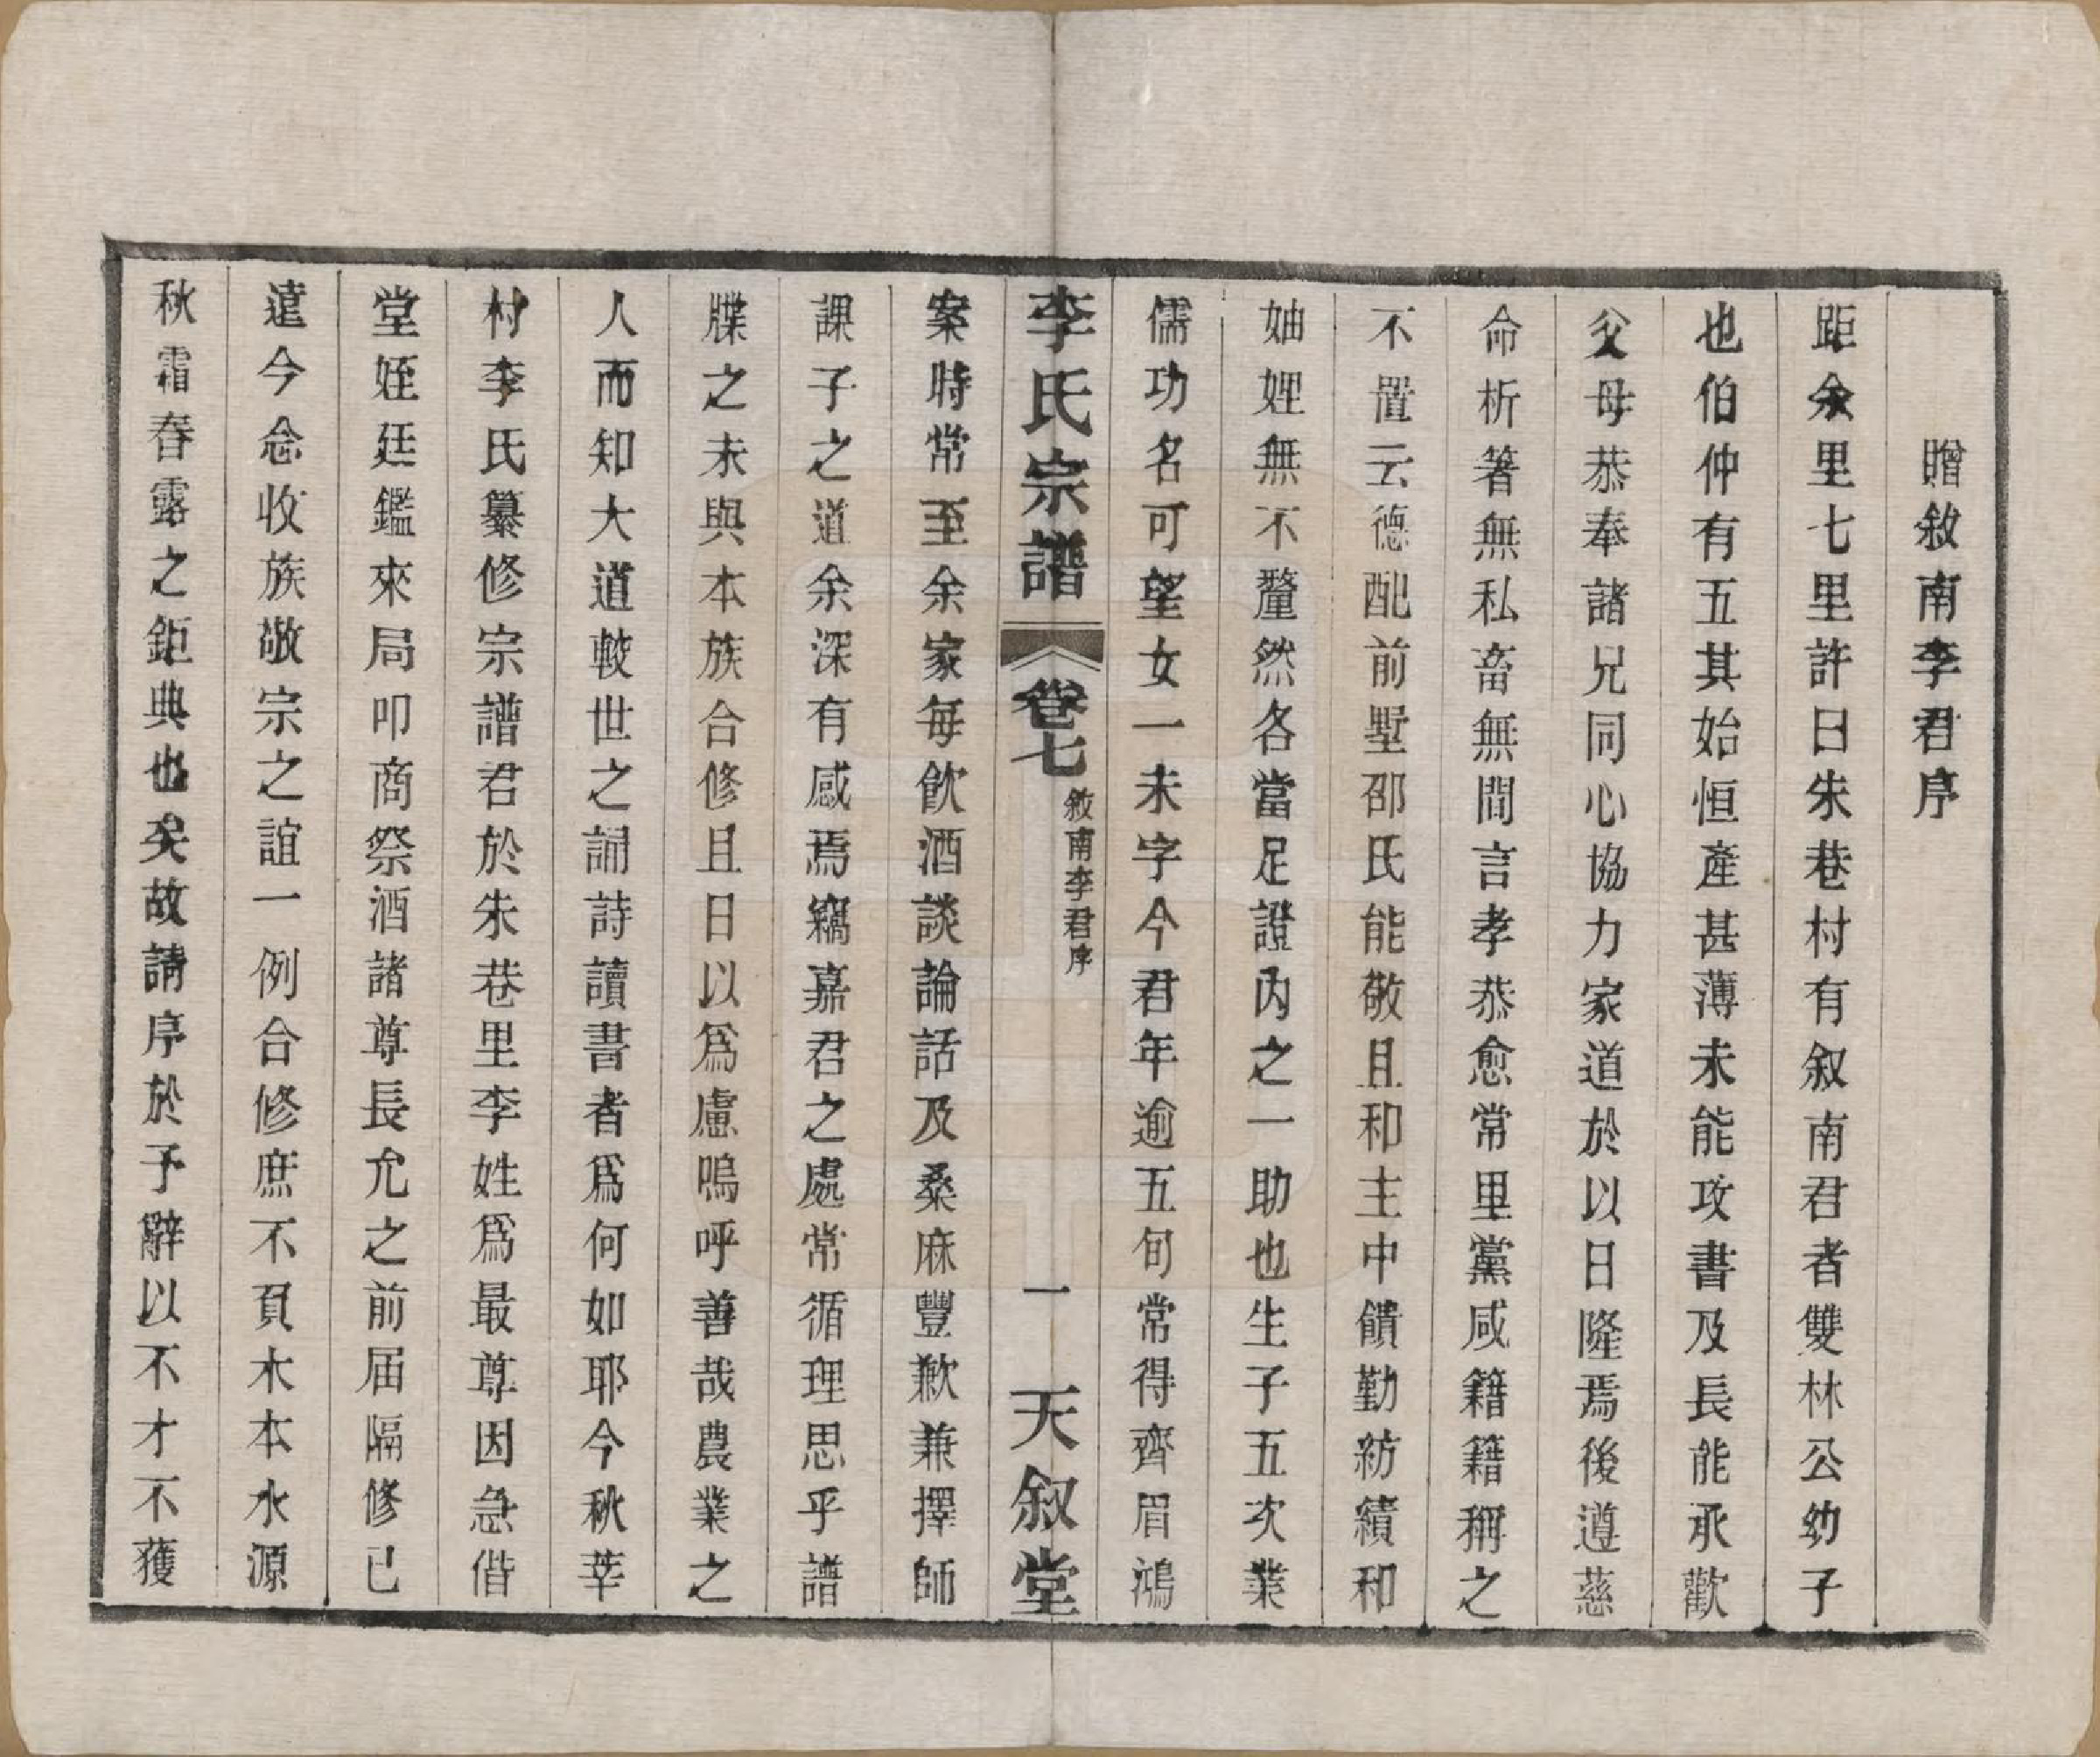 贈敘南李君序
距余里七里許曰朱巷村有叙南君者雙林公幼子
也伯仲有五其始恒產甚薄未能攻書及長能承歡
父母恭奉諸兄同心協力家道於以日隆焉後遵慈
命析箸無私畜無間言孝恭愈常里黨咸籍籍稱之
不置云德配前墅邵氏能敬且和主中饋勤紡績和
妯娌無不釐然各當足證內之一助也生子五次業
儒功名可望女一未字今君年逾五旬常得齊眉鴻
李氏宗譜 卷七 敘南李君序 一 天叙堂
案時常至余家每飲酒談論話及桑麻豐歉兼擇師
課子之道余深有感焉竊嘉君之處常循理思乎譜
牒之未與本族合修且日以爲慮嗚呼善哉農業之
人而知大道較世之誦詩讀書者爲何如耶今秋莘
村李氏纂修宗譜君於朱巷里李姓爲最尊因急偕
堂姪廷鑑來局叩商祭酒諸尊長允之前屆隔修已
遠今念收族敬宗之誼一例合修庶不負木本水源
秋霜春露之鉅典也矣故請序於予辭以不才不獲